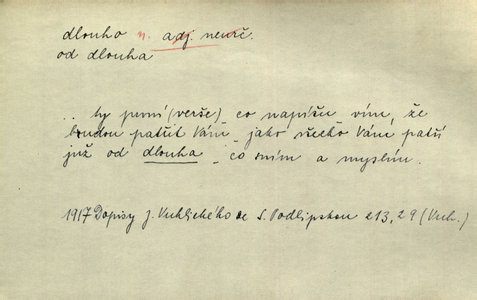 dlouho n. adj. neurč.
od dlouha
.. ty první (verše) – co napíšu – vím, že
budou patřit Vám – jako všecko Vám patří
již od dlouha – co sním a myslím.
1917 Dopisy J. Vrchlického se S. Podlipskou 213, 29 (Vrch.)